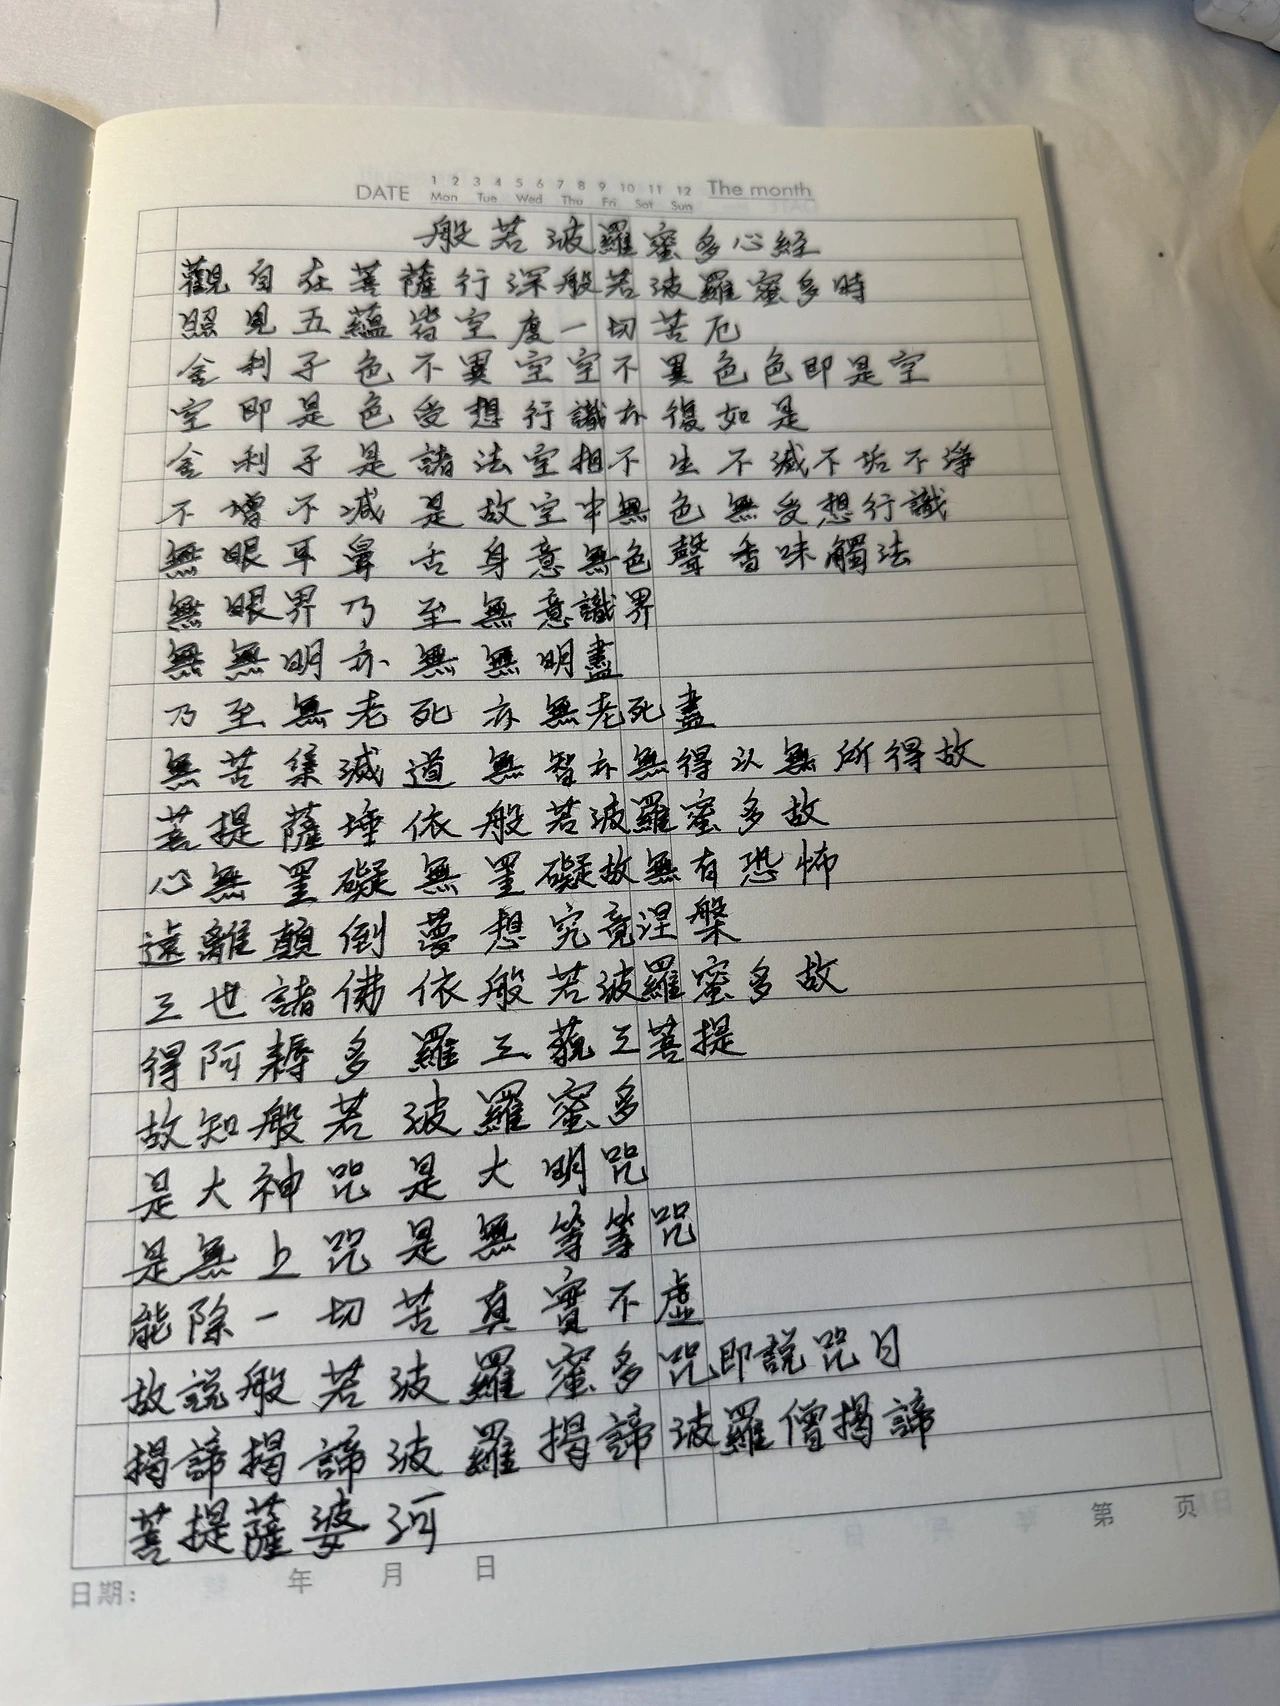 DATE 1 2 3 4 5 6 7 8 9 10 11 12 The month
Mon Tue Wed Thu Fri Sat Sun
般若波羅蜜多心経
觀自在菩薩行深般若波羅蜜多時
照見五蘊皆空度一切苦厄
舍利子色不異空空不異色色即是空
空即是色受想行識亦復如是
舍利子是諸法空相不生不滅不垢不淨
不增不减是故空中無色無受想行識
無眼耳鼻舌身意無色聲香味觸法
無眼界乃至無意識界
無無明亦無無明盡
乃至無老死亦無老死盡
無苦集滅道無智亦無得以無所得故
菩提薩埵依般若波羅蜜多故
心無罣礙無罣礙故無有恐怖
遠離顛倒夢想究竟涅槃
三世諸佛依般若波羅蜜多故
得阿耨多羅三藐三菩提
故知般若波羅蜜多
是大神咒是大明咒
是無上咒是無等等咒
能除一切苦真實不虛
故説般若波羅蜜多咒即説咒曰
揭諦揭諦波羅揭諦波羅僧揭諦
菩提薩婆訶
第 页
日期： 年 月 日